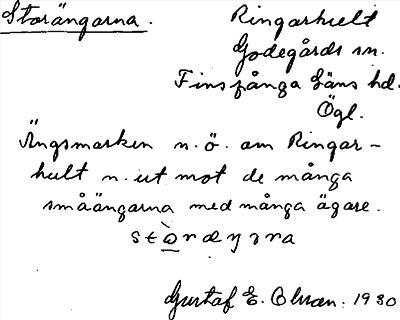 Storängarna.
Ringarhult
Godegårds sn.
Finspånga läns hd.
Ögl.
Ängsmarken n.ö. om Ringar-
hult n. ut mot de många
småängarna med många ägare.
Gustaf E. Olsson. 1930